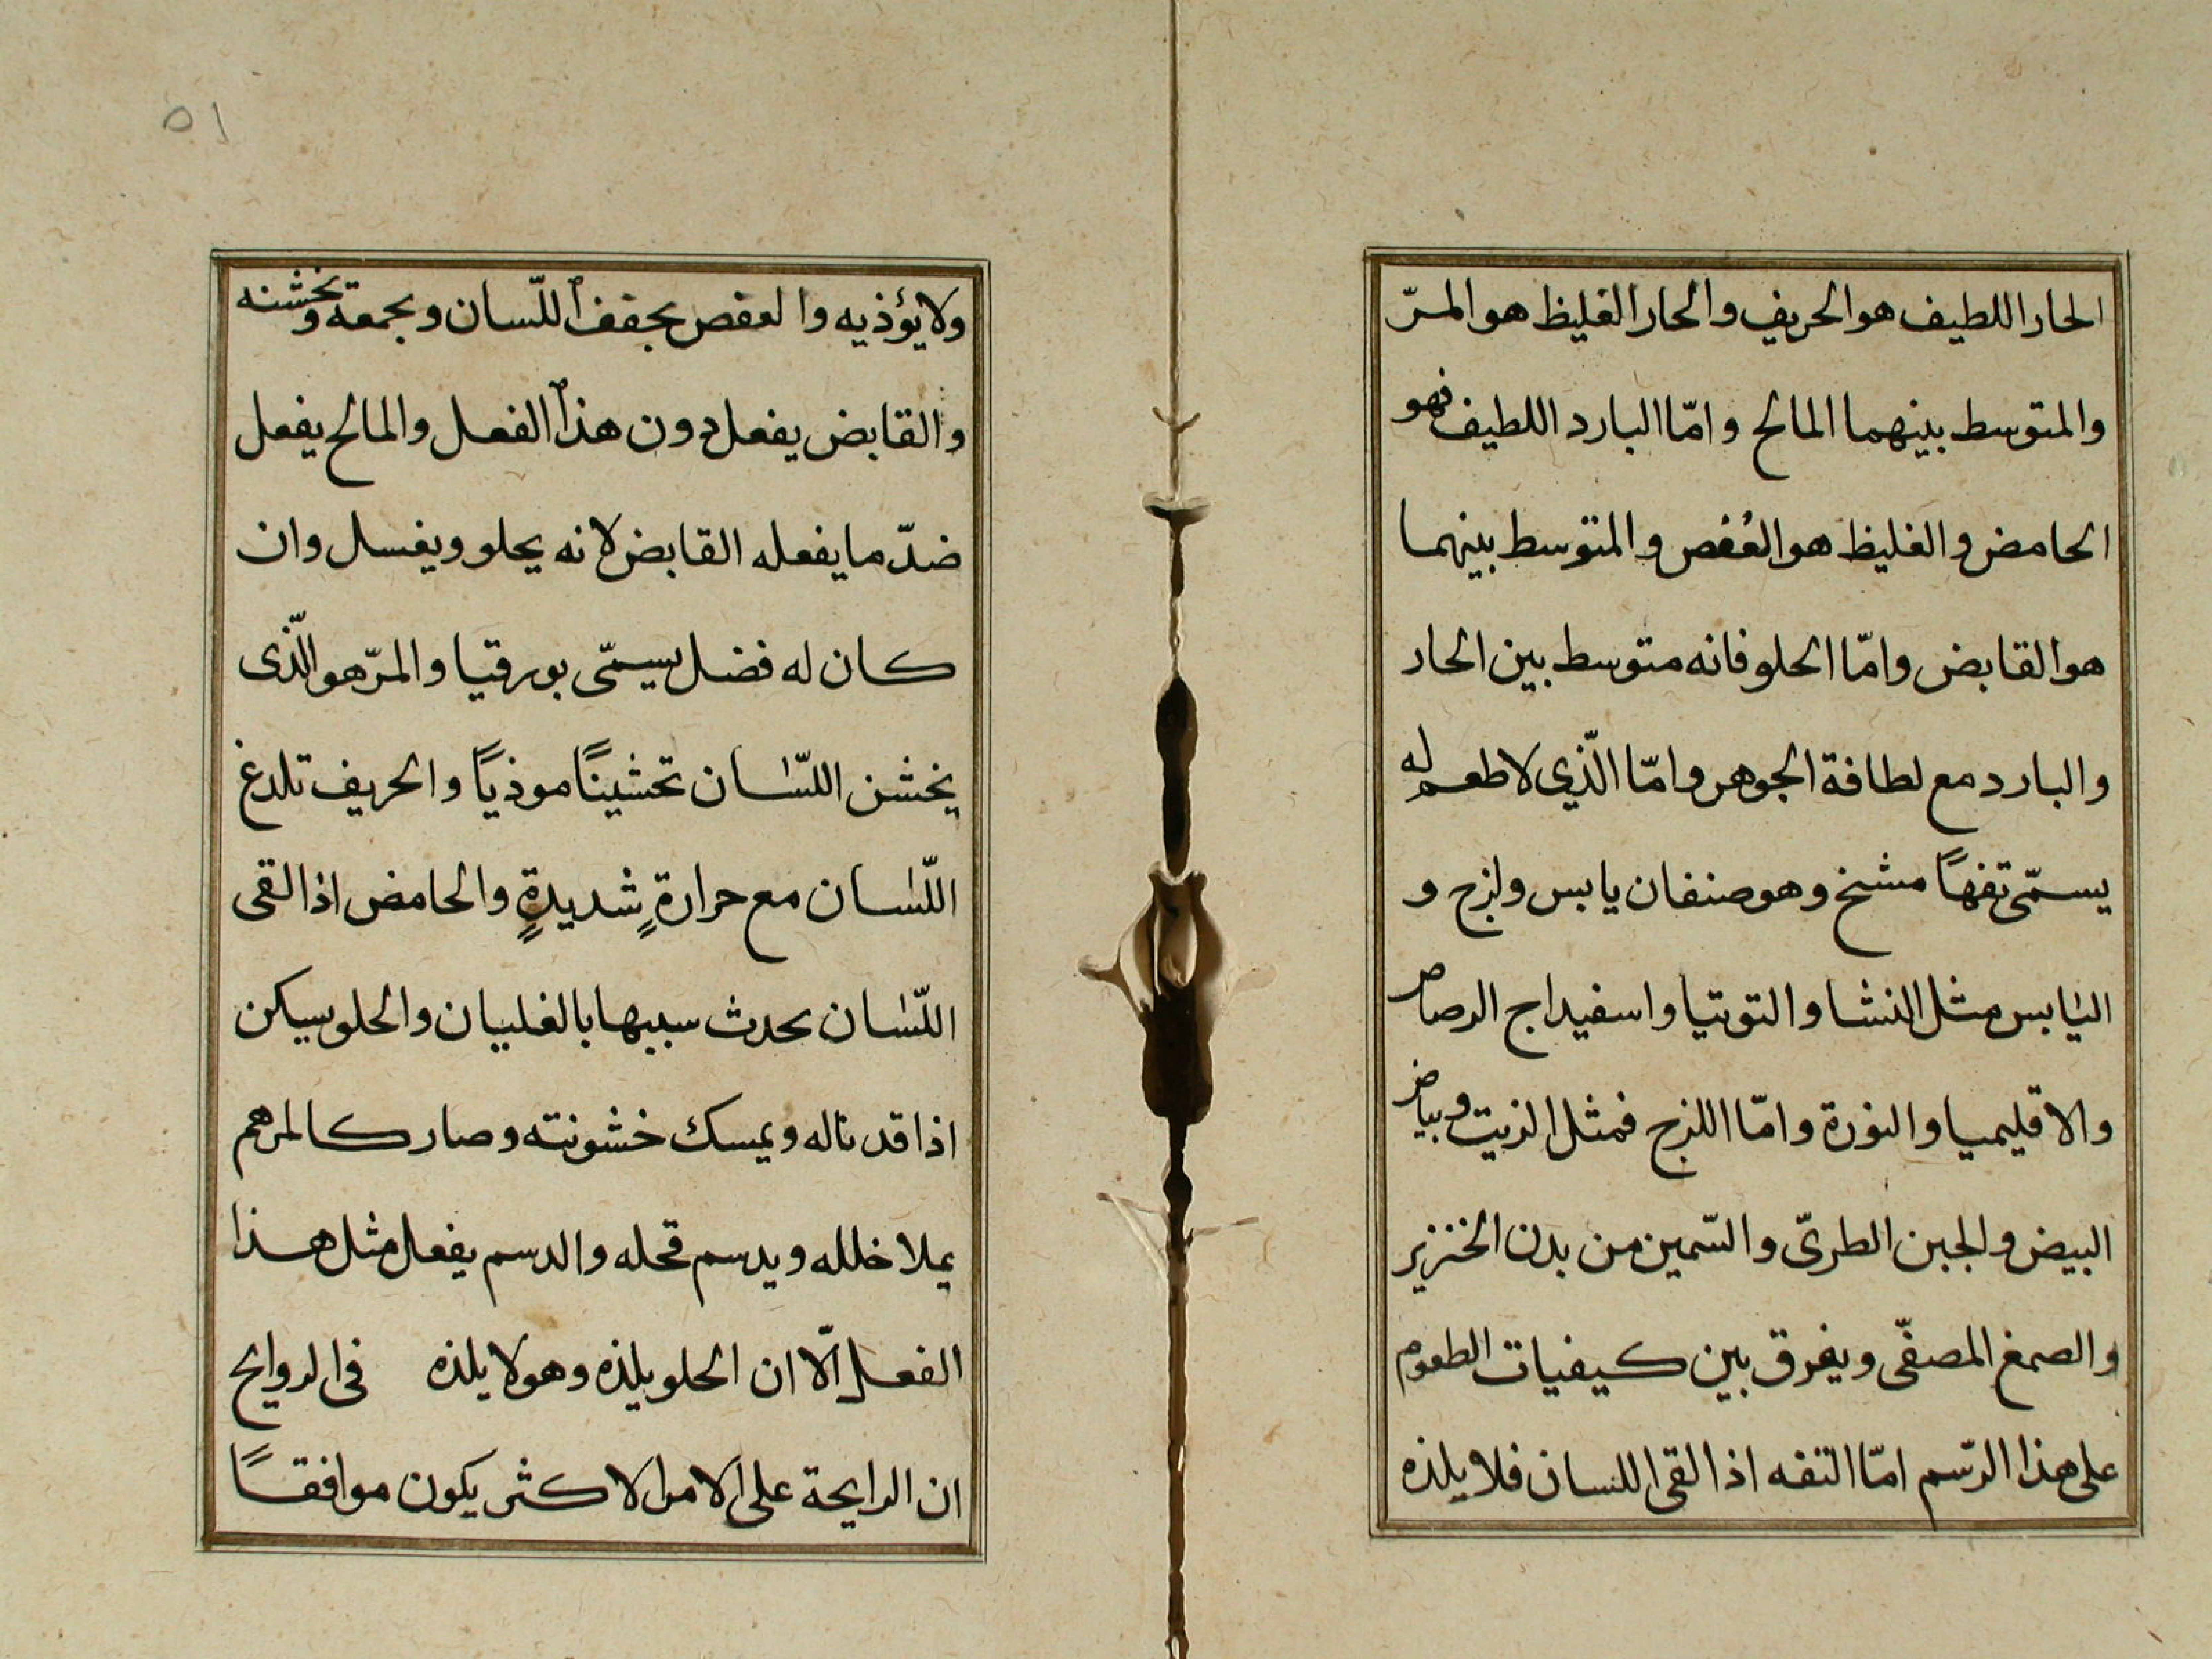 الحار اللطيف هو الحريف والحار الغليظ هو المرّ
والمتوسط بينهما المالح وامّا البارد اللطيف فهو
الحامض والغليظ هو العُفص والمتوسط بينهما
هو القابض وامّا الحلو فانه متوسط بين الحار
والبارد مع لطافة الجوهر وامّا الّذي لا طعم له
يسمّى تفهًا مشيخ وهو صنفان يابس ولزج و
اليابس مثل النشا والتوتيا واسفيداج الرصاص
والاقليميا والنورة وامّا اللزج فمثل الزيت وبياض
البيض والجبن الطريّ والسّمين من بدن الخنزير
والصمغ المصفّى ويفرق بين كيفيات الطعوم
على هذا الرّسم امّا التفه اذا القى اللسان فلا يلذه
٥١
ولا يؤذيه والعفص يجفف اللّسان ويجمعه ويخشنه
والقابض يفعل دون هذا الفعل والمالح يفعل
ضدّ ما يفعله القابض لانه يجلو ويغسل وان
كان له فضل يسمّى بورقيا والمرّ هو الّذى
يخشن اللسّان تخشينًا موذيًا والحريف تلدغ
اللّسان مع حرارةٍ شديدةٍ والحامض اذا القى
اللّسان يحدث سببها بالغليان والحلو يسكن
اذا قد ناله ويمسك خشونته وصار كالمرهم
يملا خلله ويدسم قحله والدسم يفعل مثل هذا
الفعل الّا ان الحلو يلذه وهو لا يلذه في الروايح
ان الرايحة على الامر الاكثر يكون موافقًا